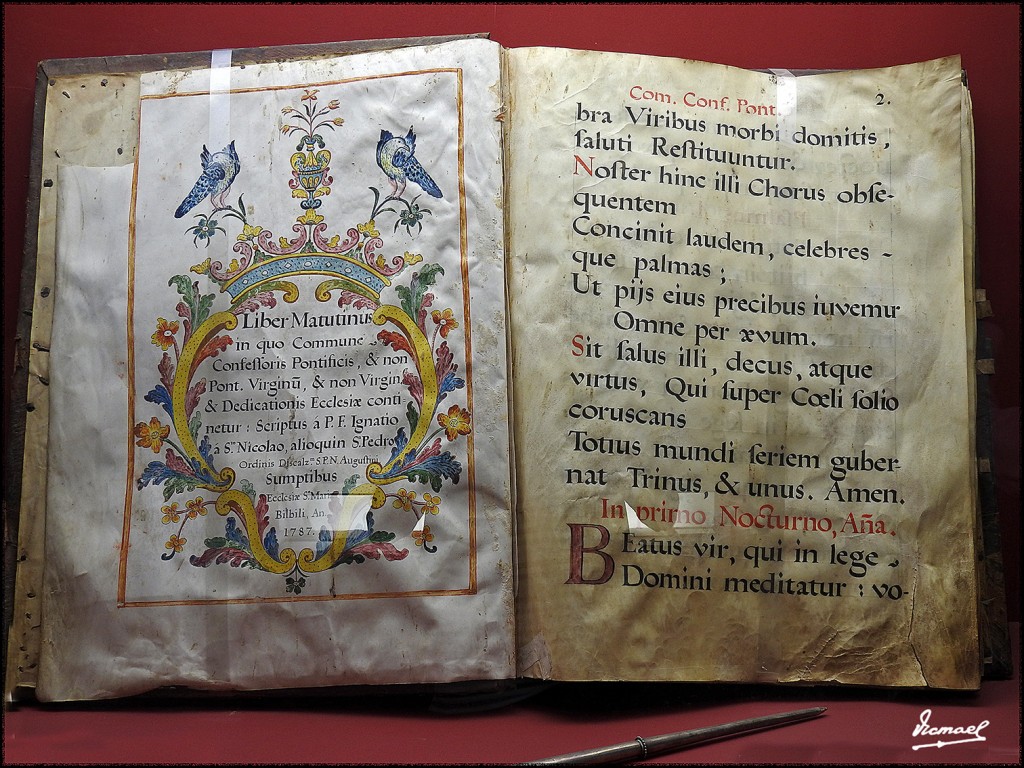 Liber Matutinus
in quo Commune
Confeſſoris Pontificis, & non
Pont. Virginū, & non Virgin.
& Dedicationis Ecclesiæ conti-
netur: Scriptus á P. F. Ignatio
á S.ᵗᵒ Nicolao, alioquin S.ⁿPedro
Ordinis Diſcalz.ᵐ S.P.N. Auguſtini
Sumptibus
Eccleſiæ S.ᵗᵃ Mari
Bilbili, An.
1787.
Com. Conf. Pont. 2.
bra Viribus morbi domitis,
ſaluti Reſtituuntur.
Noſter hinc illi Chorus obſe-
quentem
Concinit laudem, celebres-
que palmas;
Ut pijs eius precibus iuvemur
Omne per ævum.
Sit ſalus illi, decus, atque
virtus, Qui ſuper Cœli ſolio
coruscans
Totius mundi ſeriem guber-
nat Trinus, & unus. Amen.
In primo Nocturno, Aña.
BEatus vir, qui in lege
Domini meditatur: vo-
Vicmael